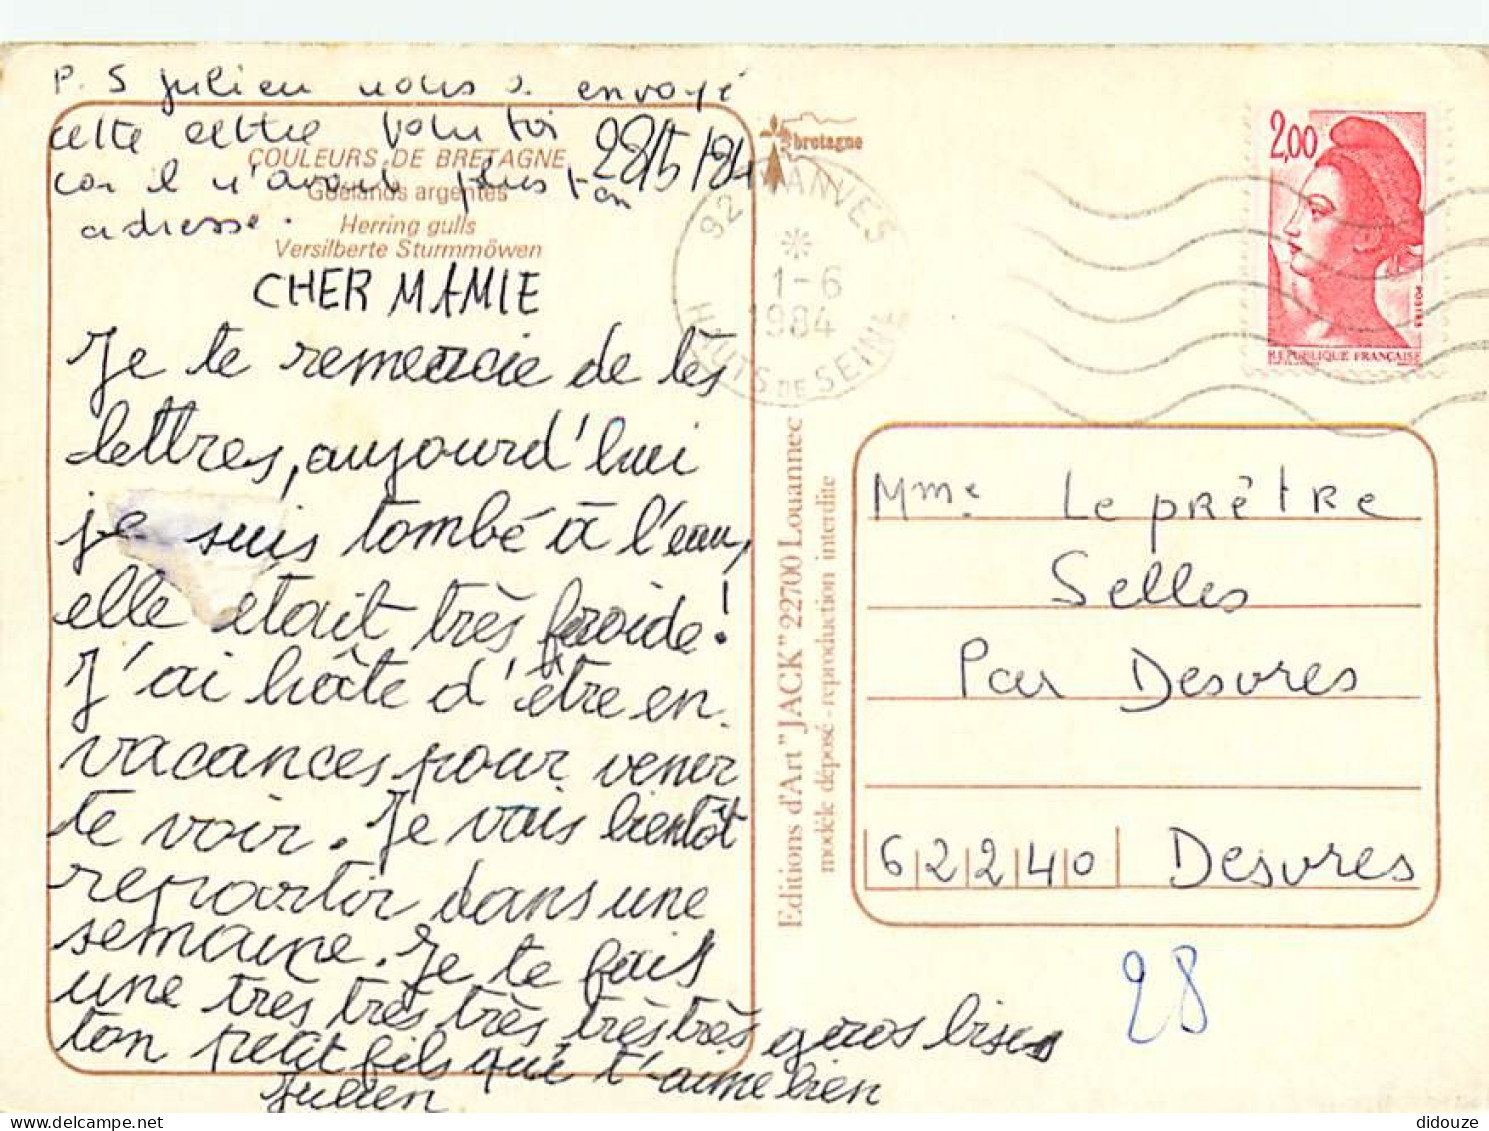 P.S Julien nous a envoyé
cette lettre pour toi
car il n'avait plus ton
adresse.
28/5/84
COULEURS DE BRETAGNE
Goélands argentés
Herring gulls
Versilberte Sturmmöwen
CHER MAMIE
Je te remercie de tès
lettres, aujourd'hui
je suis tombé à l'eau,
elle était très froide!
J'ai hâte d'être en
vacances pour vener
te voir. Je vais bientôt
repartir dans une
semaine. Je te fais
une très très, très, très très gros bises
ton petit fils qué t'aime bien
Julien
bretagne
92 VANVES
1-6
1984
HAUTS DE SEINE
2,00
POSTES
REPUBLIQUE FRANÇAISE
Editions d'Art "JACK" 22700 Louannec
modèle déposé - reproduction interdite
Mme Leprêtre
Selles
Par Desvres
62240 Desvres
28
didouze